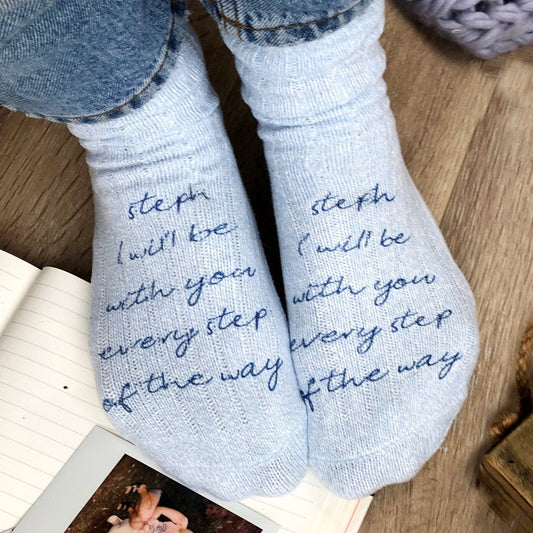 steph
I will be
with you
every step
of the way
steph
I will be
with you
every step
of the way